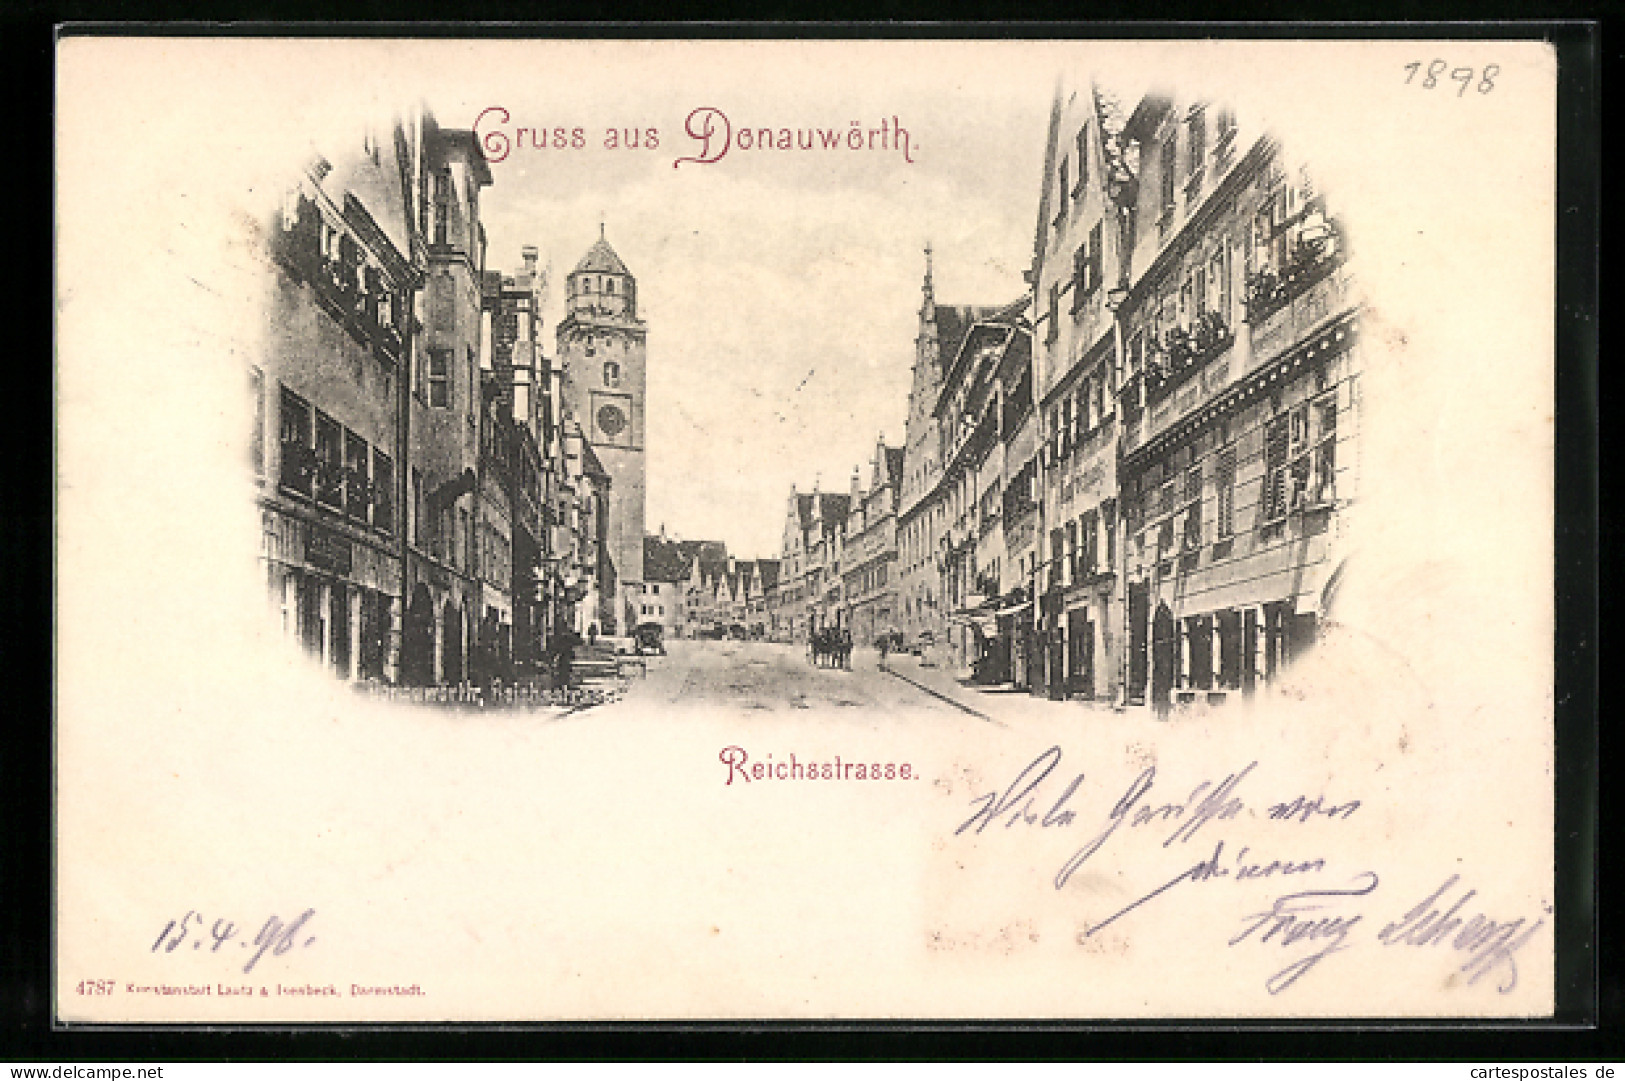 1898
Gruss aus Donauwörth.
Donauwörth, Reichsstrasse
Reichsstrasse.
Viele Grüsse von
deinem
Franz
15.4.98.
4787 Kunstanstalt Lautz & Isenbeck, Darmstadt.
www.delcampe.net
cartespostales de